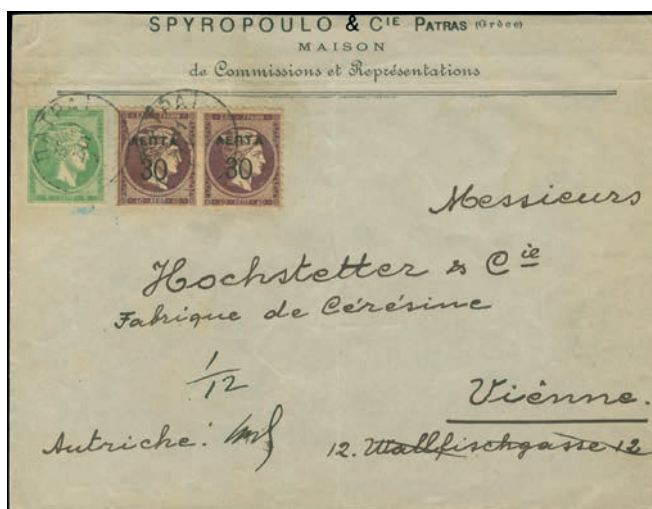 SPYROPOULO & CIE PATRAS (Grèce)
MAISON
de Commissions et Représentations
ΛΕΠΤΑ
30
ΛΕΠΤΑ
30
Messieurs
Hochstetter & Cie
Fabrique de Cérésine
1/12
Viénne.
Autriche:
12. Wallfischgasse 12